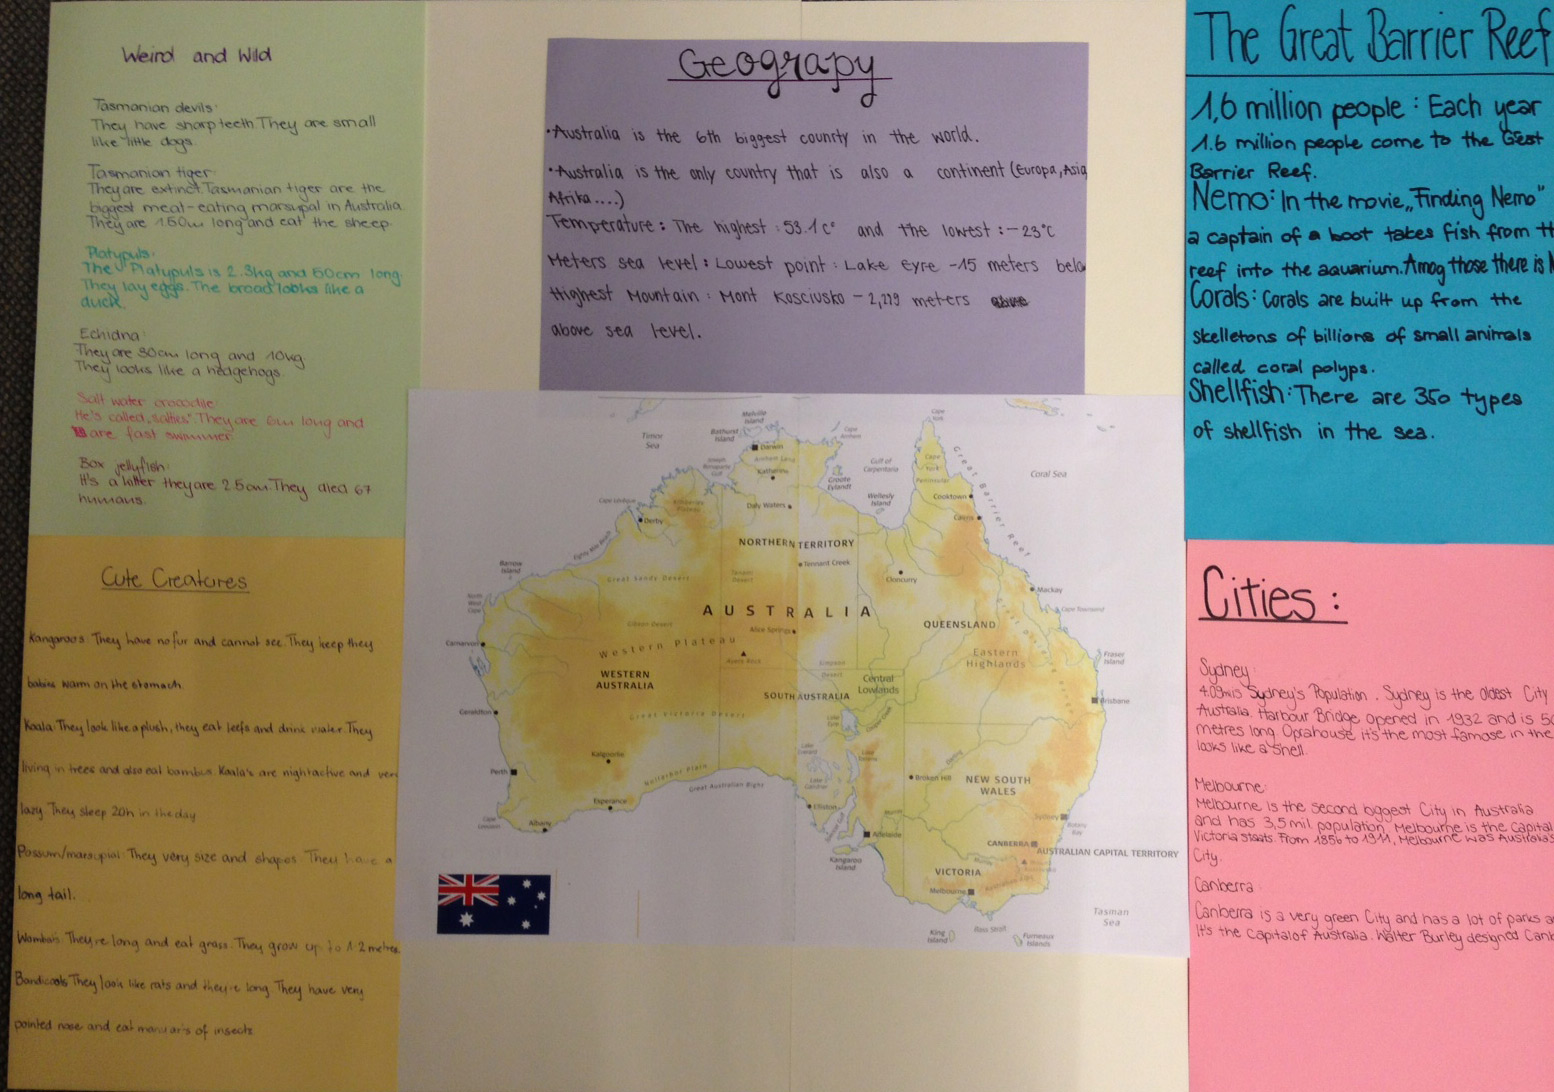 Weird and Wild
Tasmanian devils:
They have sharp teeth. They are small
like little dogs.
Tasmanian tiger:
They are extinct. Tasmanian tiger are the
biggest meat-eating marsupal in Australia.
They are 150cm long and eat the sheep.
Platypuls:
The Platypuls is 2.3kg and 50cm long.
They lay eggs. The broad lobhs like a
duck.
Echidna:
They are 30cm long and 10kg
They looks like a hedgehogs.
Salt water crocodile:
He's called „salties". They are 6m long and
are fast swimmer
Box jellyfish:
It's a killer they are 25cm. They died 67
humans.
Cute Creatures
Kangaroos: They have no fur and cannot see. They keep they
babies warm on the stomach.
Koala: They look like a plush, they eat leefs and drink water. They
living in trees and also eat bambus. Koala's are nightactive and very
lazy. They sleep 20h in the day
Possum/marsupial: They very size and shapes. They have a
long tail.
Wombats: They're long and eat grass. They grow up to 1.2 metres
Bandicoots They look like rats and they're long. They have very
pointed nose and eat of insects
Geograpy
•Australia is the 6th biggest counrty in the world.
•Australia is the only country that is also a continent (Europa, Asia,
Afrika....)
Temperature: The highest: 53.1 c° and the lowest: -23°C
Meters sea level: Lowest point: Lake Eyre -15 meters belo
Highest Mountain: Mont Kosciusko - 2,229 meters
above sea level.
The Great Barrier Reef
1,6 million people: Each year
1.6 million people come to the Great
Barrier Reef.
Nemo: In the movie „Finding Nemo"
a captain of a boot takes fish from th
reef into the aquarium. Amog those there is N
Corals: Corals are built up from the
skelletons of billions of small animals
called coral polyps.
Shellfish: There are 350 types
of shellfish in the sea.
Cities:
Sydney
4.09 mis Sydney's Population. Sydney is the oldest City
Australia. Harbour Bridge opened in 1932 and is 50
metres long. Oprahouse it's the most famose in the
looks like a Shell.
Melbourne:
Melbourne is the second biggest City in Australia
and has 3,5 mil population. Melbourne is the Capital
Victoria staats. From 1856 to 1911, Melbourne was Australia's
City.
Canberra
Canberra is a very green City and has a lot of parks a
It's the Capital of Australia. Walter Burley designed Canb
Melville
Island
Bathurst
Island
Darwin
Arnhem Land
Joseph
Bonaparte
Gulf
Katherine
Timor
Sea
Cape
Arnhem
Gulf of
Carpentaria
Groote
Eylandt
Wellesly
Island
Cape
York
Cape
York
Peninsula
Great Barrier Reef
Coral Sea
Cooktown
Cairns
Cape Lévêque
Derby
Kimberley
Plateau
Daly Waters
Eighty Mile Beach
Barrow
Island
North
West
Cape
NORTHERN TERRITORY
Tennant Creek
Tanami
Desert
Great Sandy Desert
Cloncurry
Mackay
Cape Townsend
AUSTRALIA
Gibson Desert
Alice Springs
Western Plateau
Ayers Rock
QUEENSLAND
Eastern
Highlands
Fraser
Island
Carnarvon
WESTERN
AUSTRALIA
Simpson
Desert
Central
Lowlands
SOUTH AUSTRALIA
Brisbane
Geraldton
Great Victoria Desert
Lake
Eyre
Kalgoorlie
Nullarbor Plain
Great Australian Bight
Perth
Esperance
Albany
Cape
Leeuwin
Lake
Gairdner
Darling
Broken Hill
NEW SOUTH
WALES
Sydney
Botany
Bay
Adelaide
Murray
CANBERRA
AUSTRALIAN CAPITAL TERRITORY
Kangaroo
Island
VICTORIA
Melbourne
Tasman
Sea
King
Island
Bass Strait
Furneaux
Islands